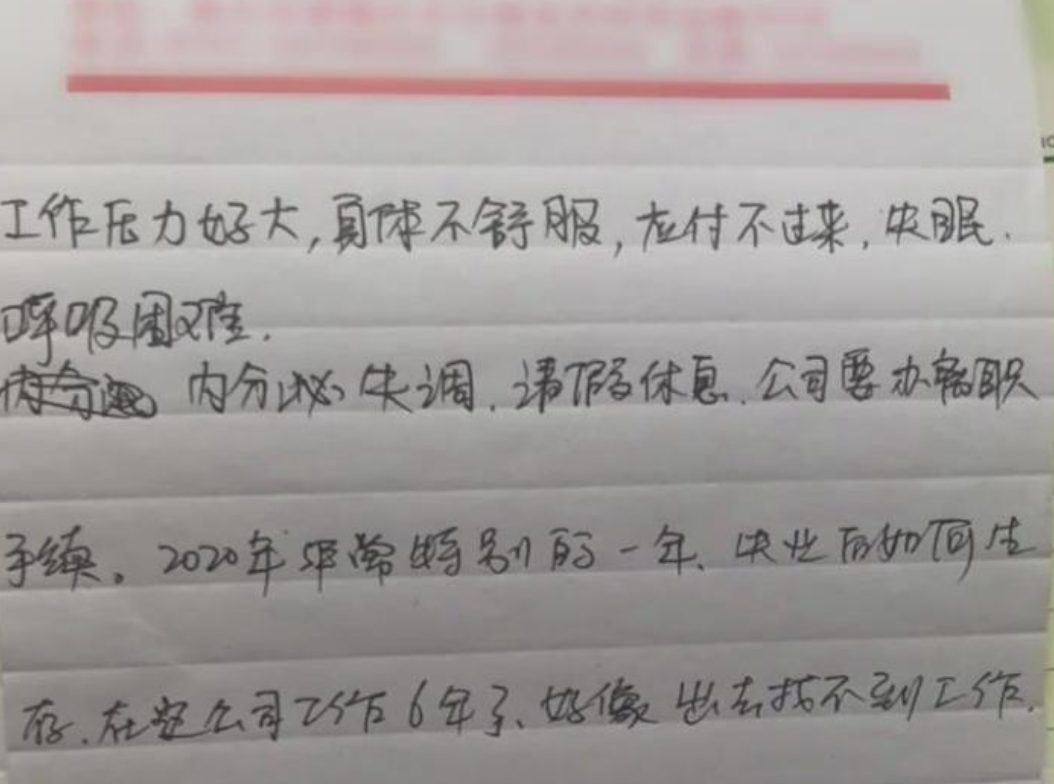 工作压力好大,身体不舒服,应付不过来,失眠.
呼吸困难.
内分泌失调.请假休息.公司要办离职
手续。2020年非常特别的一年.失业后如何生
存.在这公司工作6年了、好像出去找不到工作.